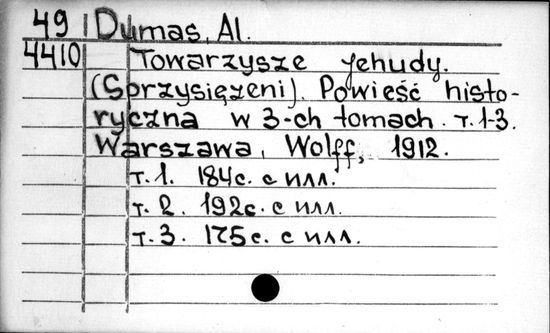 49 Dumas, Al.
4410 Towarzysze Jehudy.
(Sprzysiężeni). Powieść histo-
ryczna w 3-ch tomach. т. 1-3.
Warszawa, Wolff, 1912.
т. 1. 184с. с илл.
т. 2. 192с. с илл.
т. 3. 175с. с илл.